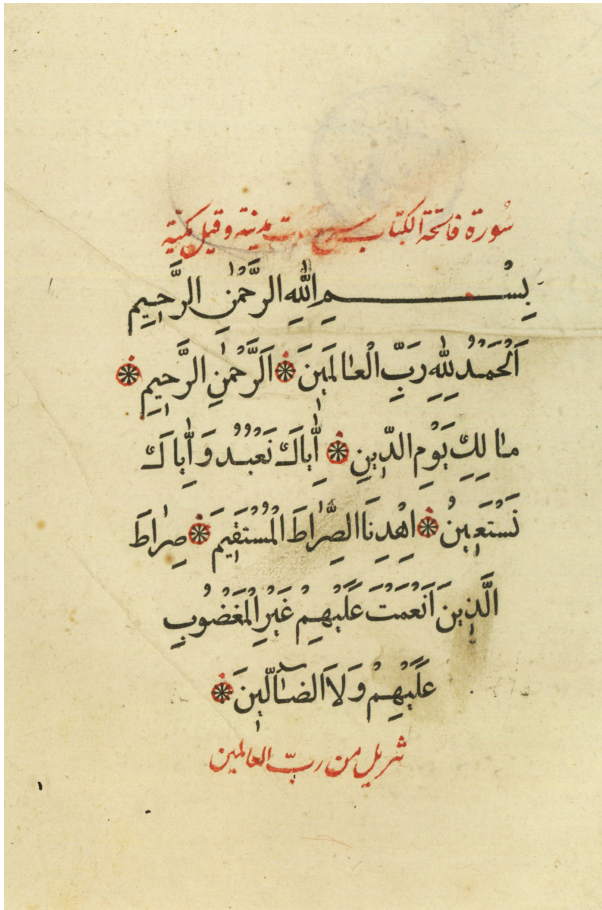 سُورة فاتحة الكتاب سبع آيات مدينة وقيل مكيّة
بِسْمِ اللّٰهِ الرَّحْمٰنِ الرَّحِيمِ
اَلْحَمْدُ لِلّٰهِ رَبِّ الْعٰالَمِينَ اَلرَّحْمٰنِ الرَّحِيمِ
مٰالِكِ يَوْمِ الدِّينِ إِيَّاكَ نَعْبُدُ وَإِيَّاكَ
نَسْتَعِينُ اِهْدِنَا الصِّرٰاطَ الْمُسْتَقِيمَ صِرٰاطَ
الَّذِينَ اَنْعَمْتَ عَلَيْهِمْ غَيْرِ الْمَغْضُوبِ
عَلَيْهِمْ وَلاَ الضّٰآلِّينَ
تنزيل من ربّ العالمين
١